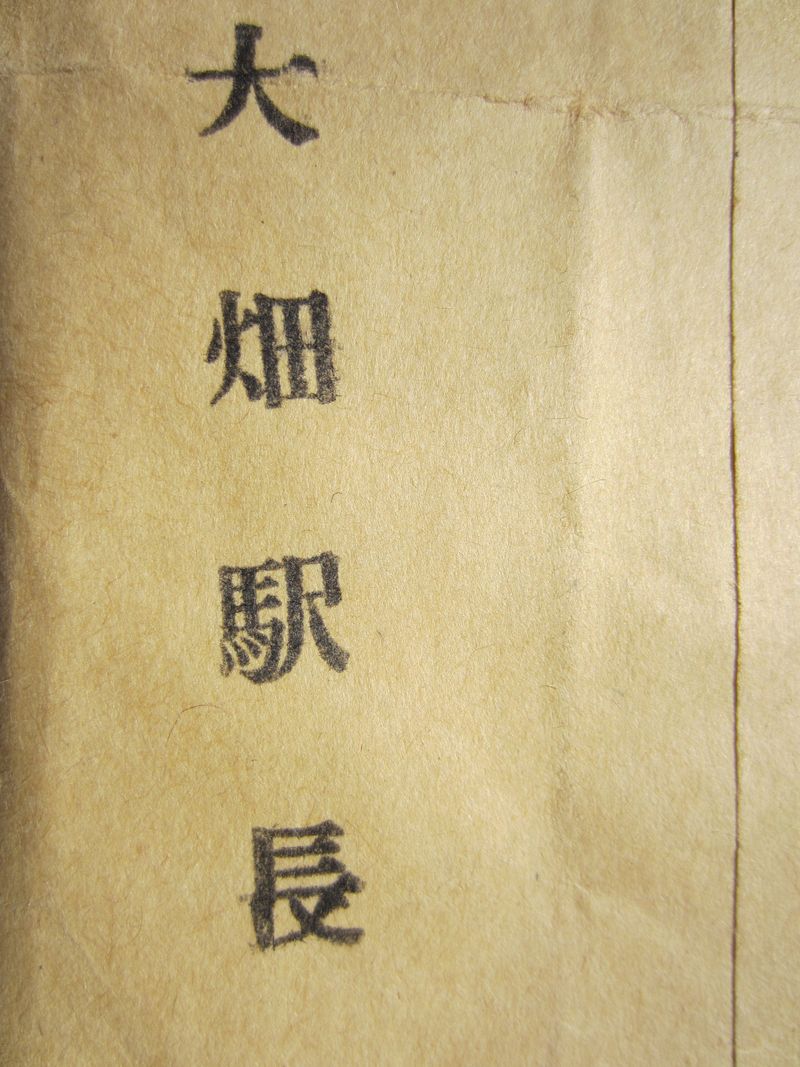 大畑駅長